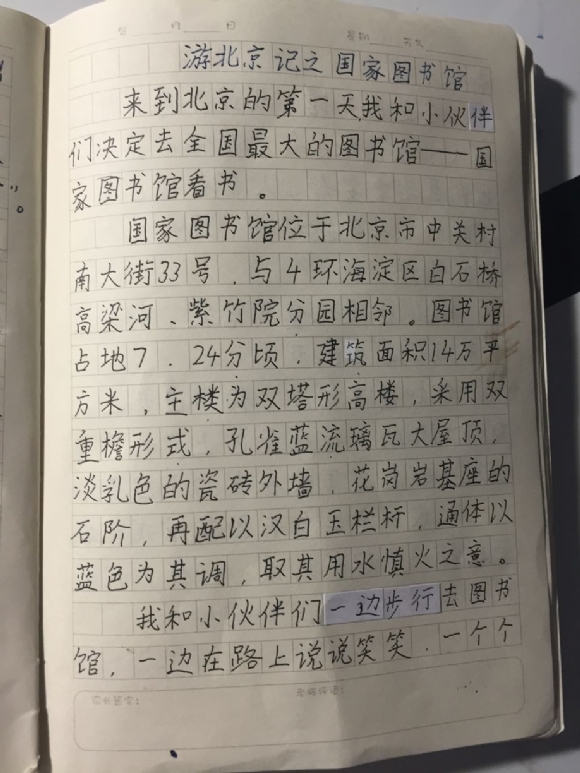 游北京记之国家图书馆
来到北京的第一天我和小伙伴
们决定去全国最大的图书馆——国
家图书馆看书。
国家图书馆位于北京市中关村
南大街33号，与4环海淀区白石桥
高梁河、紫竹院分园相邻。图书馆
占地7.24分顷，建筑面积14万平
方米，主楼为双塔形高楼，采用双
重檐形式，孔雀蓝流璃瓦大屋顶，
淡乳色的瓷砖外墙，花岗岩基座的
石阶，再配以汉白玉栏杆，通体以
蓝色为其调，取其用水慎火之意。
我和小伙伴们一边步行去图书
馆，一边在路上说说笑笑，一个个
家长签字： 老师评语：